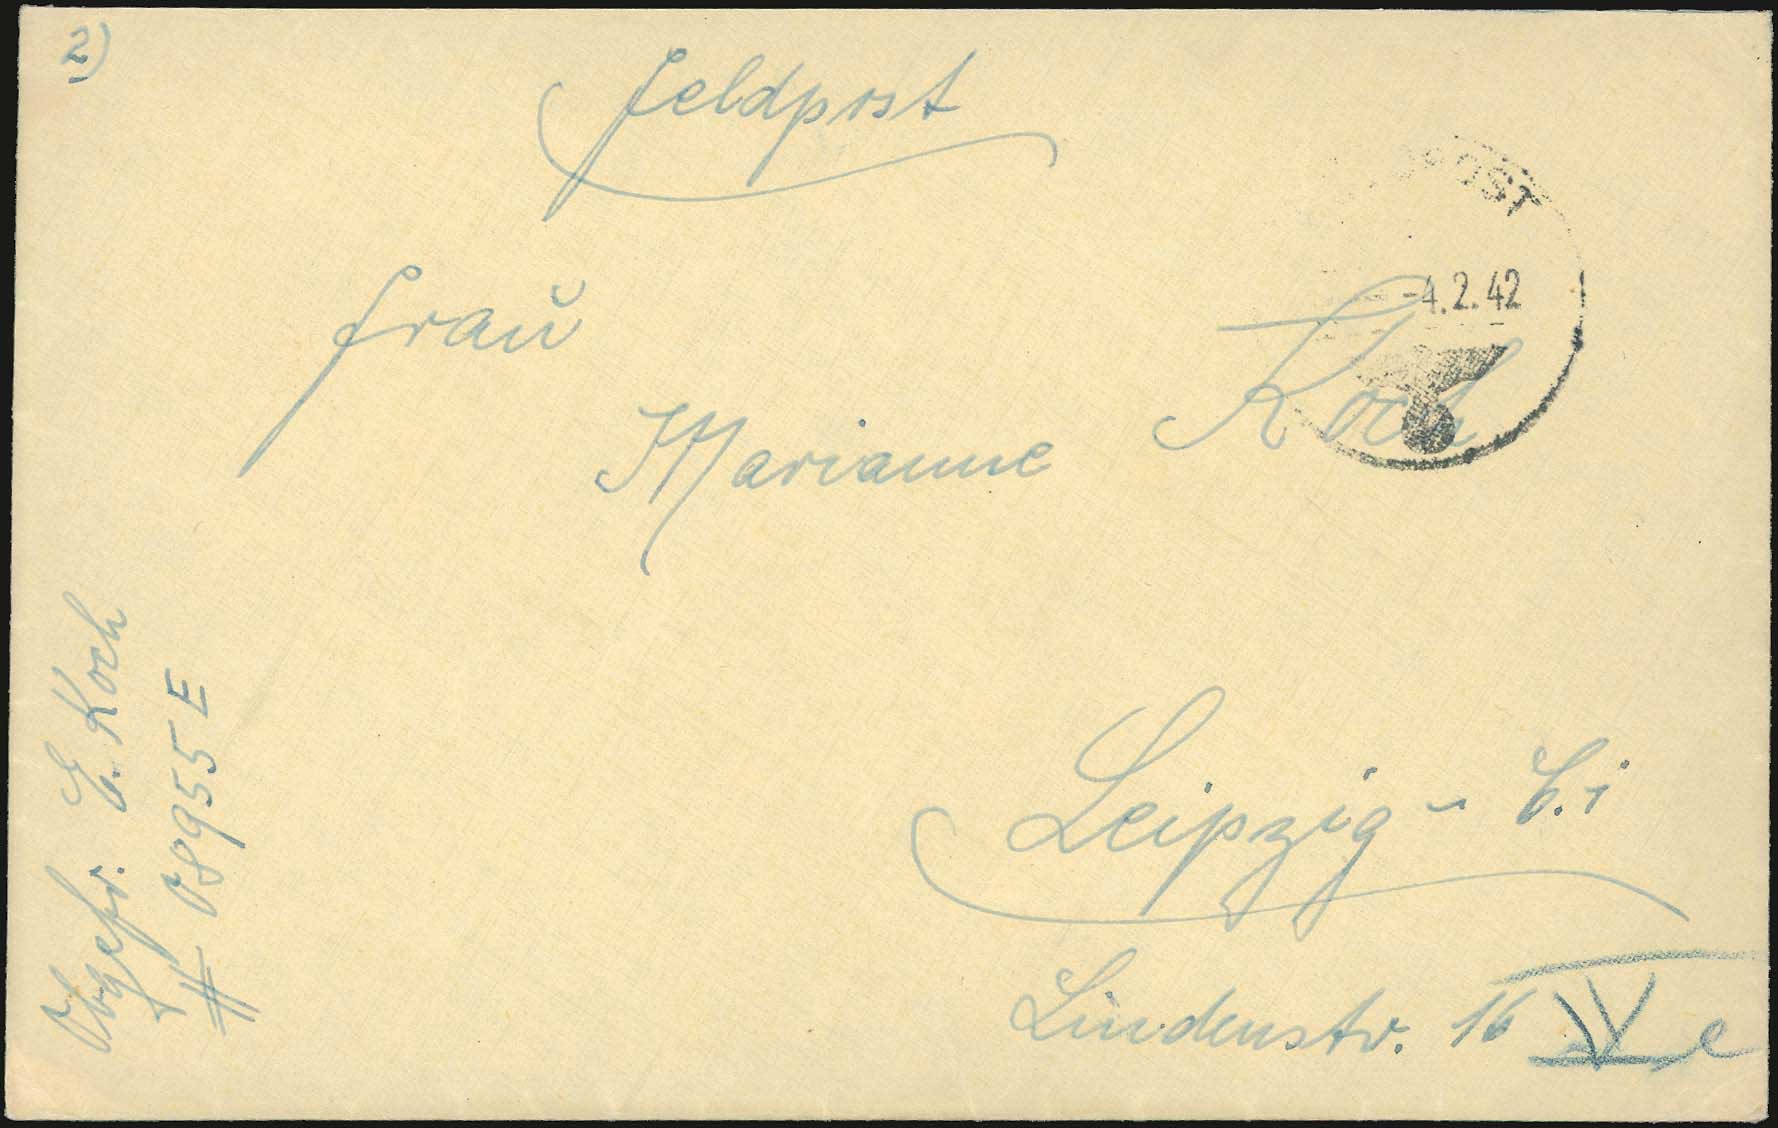 2)
Feldpost
POST
-4.2.42
Frau
Marianne Koch
Leipzig - C.1
Lindenstr. 16 IV
Obgefr. E. Koch
# 08955 E